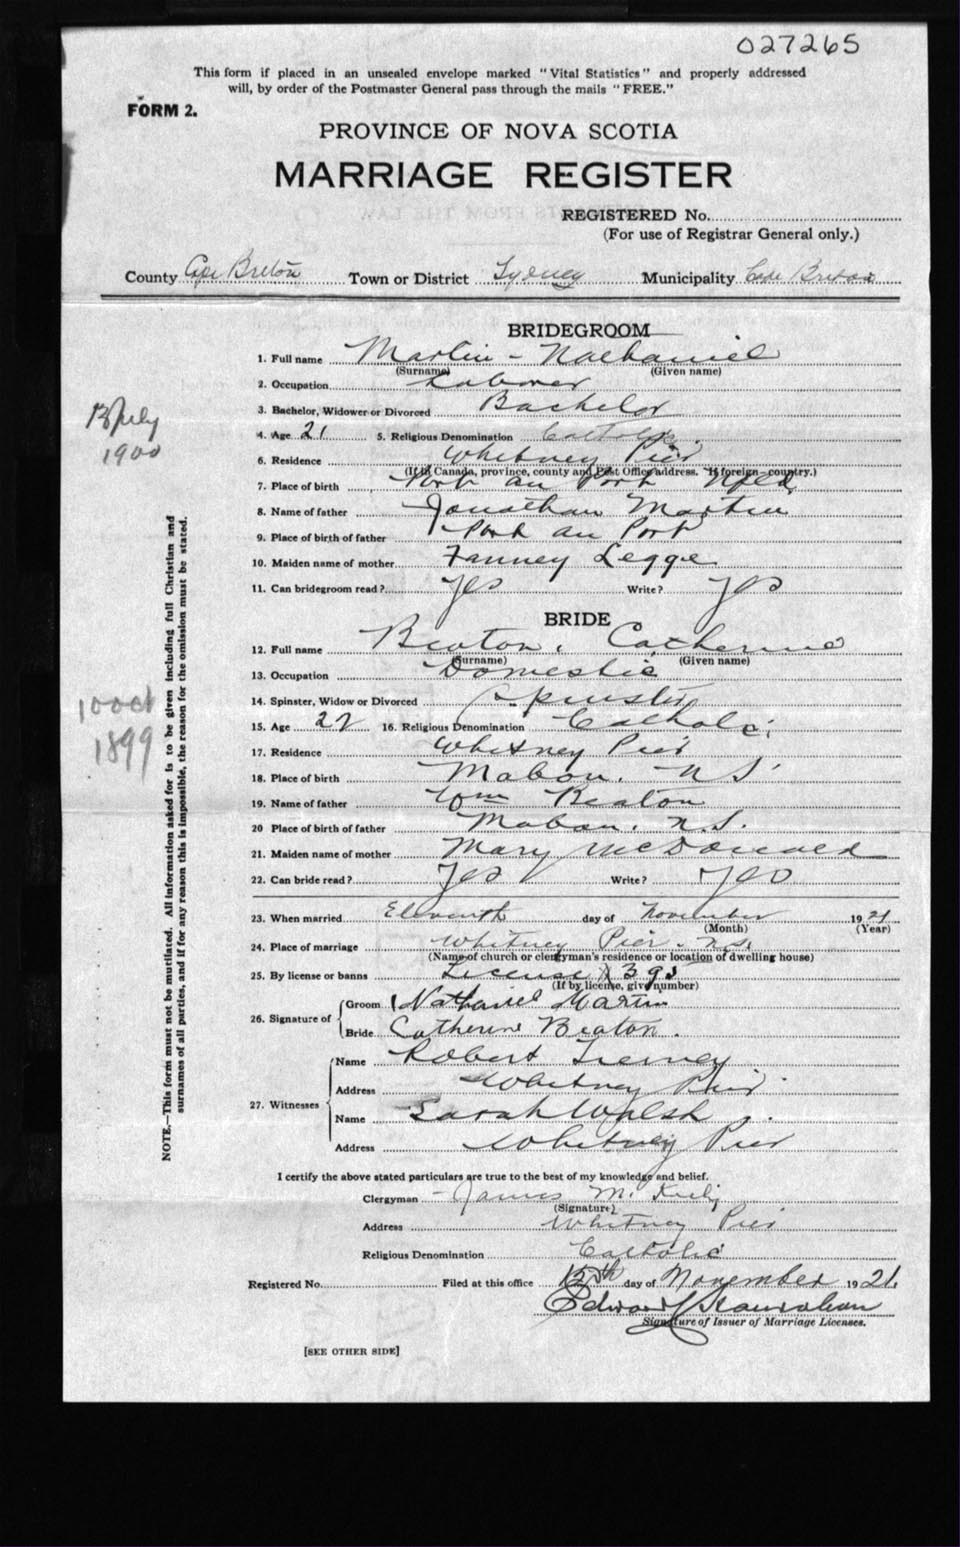 027265
This form if placed in an unsealed envelope marked "Vital Statistics" and properly addressed
will, by order of the Postmaster General pass through the mails "FREE."
FORM 2.
PROVINCE OF NOVA SCOTIA
MARRIAGE REGISTER
REGISTERED No.
(For use of Registrar General only.)
County Cape Breton Town or District Sydney Municipality Cape Breton
BRIDEGROOM
1. Full name Martin - Nathaniel
(Surname) (Given name)
2. Occupation Laborer
3. Bachelor, Widower or Divorced Bachelor
13 July
1900
4. Age 21 5. Religious Denomination Catholic
6. Residence Whitney Pier
(If in Canada, province, county and Post Office address. If foreign—country.)
7. Place of birth Port au Port Nfld
8. Name of father Jonathan Martin
9. Place of birth of father Port au Port
10. Maiden name of mother Fanney Legge
11. Can bridegroom read? Yes Write? Yes
BRIDE
12. Full name Beaton, Catherine
(Surname) (Given name)
13. Occupation Domestic
14. Spinster, Widow or Divorced Spinster
10 Oct
1899
15. Age 22 16. Religious Denomination Catholic
17. Residence Whitney Pier
18. Place of birth Mabou. N S
19. Name of father Wm Beaton
20 Place of birth of father Mabou. N.S.
21. Maiden name of mother Mary McDonald
22. Can bride read? Yes Write? Yes
23. When married Eleventh day of November 1921
(Month) (Year)
24. Place of marriage Whitney Pier. N.S.
(Name of church or clergyman's residence or location of dwelling house)
25. By license or banns License
(If by license, give number)
26. Signature of Groom Nathaniel Martin
Bride Catherine Beaton.
27. Witnesses Name Robert Tierney
Address Whitney Pier
Name Sarah Walsh
Address Whitney Pier
I certify the above stated particulars are true to the best of my knowledge and belief.
Clergyman James M.
(Signature)
Address Whitney Pier
Religious Denomination Catholic
Registered No. Filed at this office day of November 1921.
Edward
Signature of Issuer of Marriage Licenses.
[SEE OTHER SIDE]
NOTE.—This form must not be mutilated. All information asked for is to be given including full Christian and
surnames of all parties, and if for any reason this is impossible, the reason for the omission must be stated.